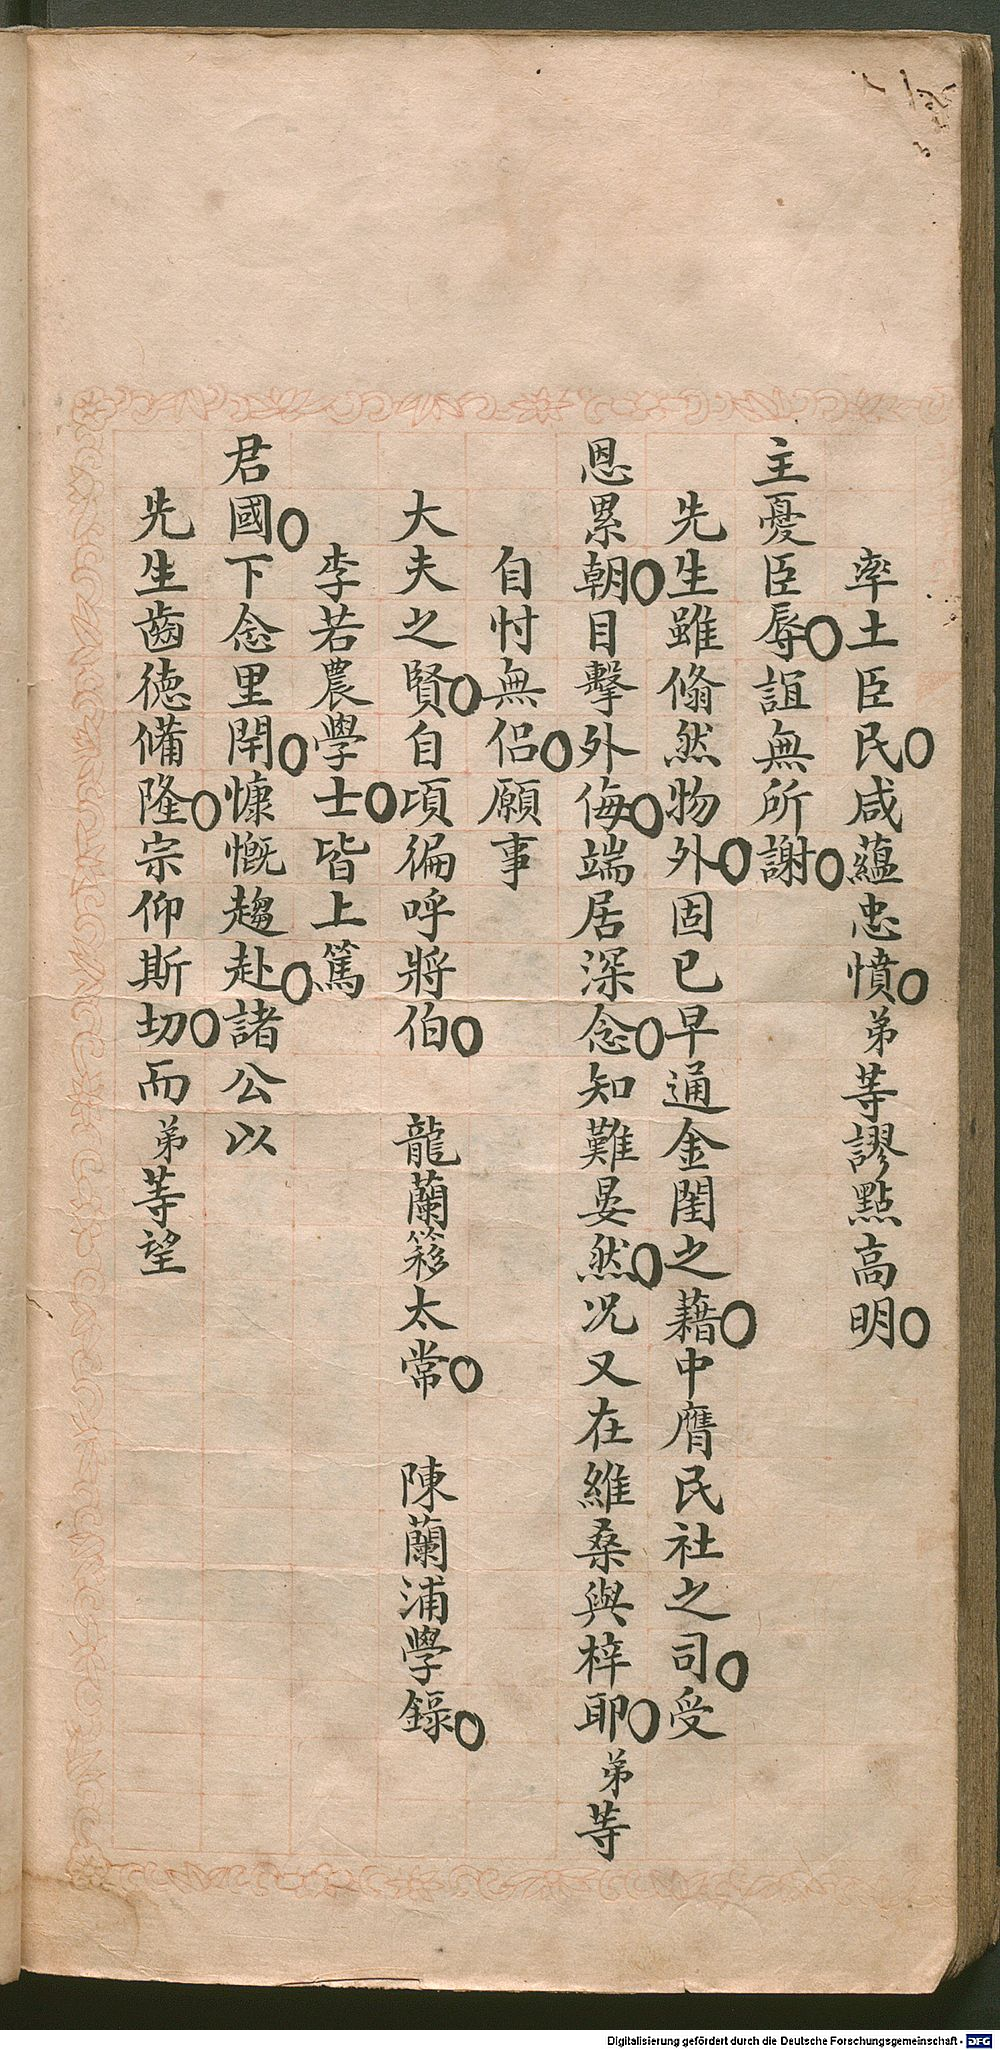 率土臣民○咸蘊忠憤○弟等謬點高明○
主憂臣辱○誼無所謝○
先生雖翛然物外○固已早通金閨之藉○中膺民社之司○受
恩累朝○目擊外侮○端居深念○知難晏然○况又在維桑與梓耶○弟等
自忖無侶○願事
大夫之賢○自項徧呼將伯○龍蘭簃太常○陳蘭浦學錄○
李若農學士○皆上篤
君國○下念里閈○慷慨趨赴○諸公以
先生齒德備隆○宗仰斯切○而弟等望
Digitalisierung gefördert durch die Deutsche Forschungsgemeinschaft - DFG